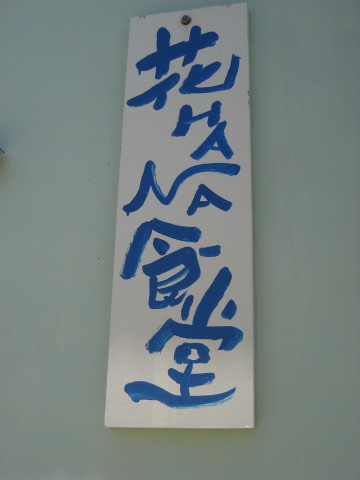 花HANA食堂